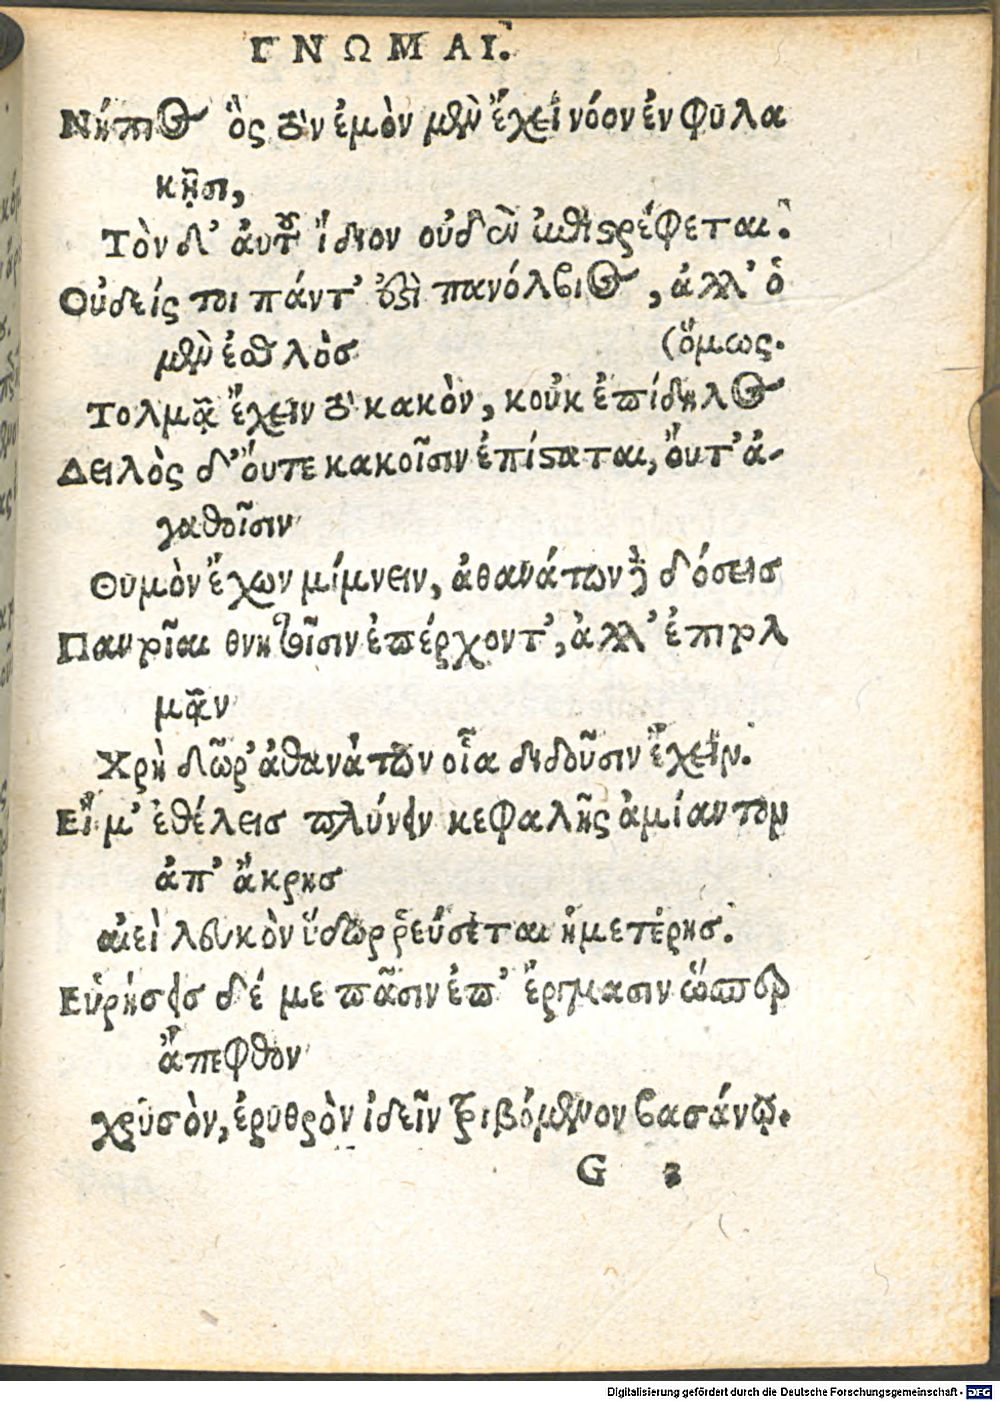 ΓΝΩΜΑΙ.
Νήπιος ὃς τὸν ἐμὸν μὲν ἔχει νόον ἐν φυλα
κῇσι,
Τὸν δ' αὐτοῦ ἴδιον οὐδὲν ἐπιστρέφεται.
Οὐδείς τοι πάντ' ἐστὶ πανόλβιος, ἀλλ' ὁ
μὲν ἐσθλὸς (ὅμως.
Τολμᾷ ἔχειν τὸ κακὸν, κοὐκ ἐπίδηλος
Δειλὸς δ' οὔτε κακοῖσιν ἐπίσταται, οὔτ' ἀ-
γαθοῖσιν
Θυμὸν ἔχων μίμνειν, ἀθανάτων δὲ δόσεις
Παντοῖαι θνητοῖσιν ἐπέρχοντ', ἀλλ' ἐπιτολ
μᾷν
Χρὴ δῶρ' ἀθανάτων οἷα διδοῦσιν ἔχειν.
Εἴ μ' ἐθέλεις πλύνειν κεφαλῆς ἀμίαντον
ἀπ' ἄκρης
αἰεὶ λευκὸν ὕδωρ ῥεύσεται ἡμετέρης.
Εὑρήσεις δέ με πᾶσιν ἐπ' ἔργμασιν ὥσπερ
ἄπεφθον
χρυσὸν, ἐρυθρὸν ἰδεῖν τριβόμενον βασάνῳ.
G 3
Digitalisierung gefördert durch die Deutsche Forschungsgemeinschaft - DFG